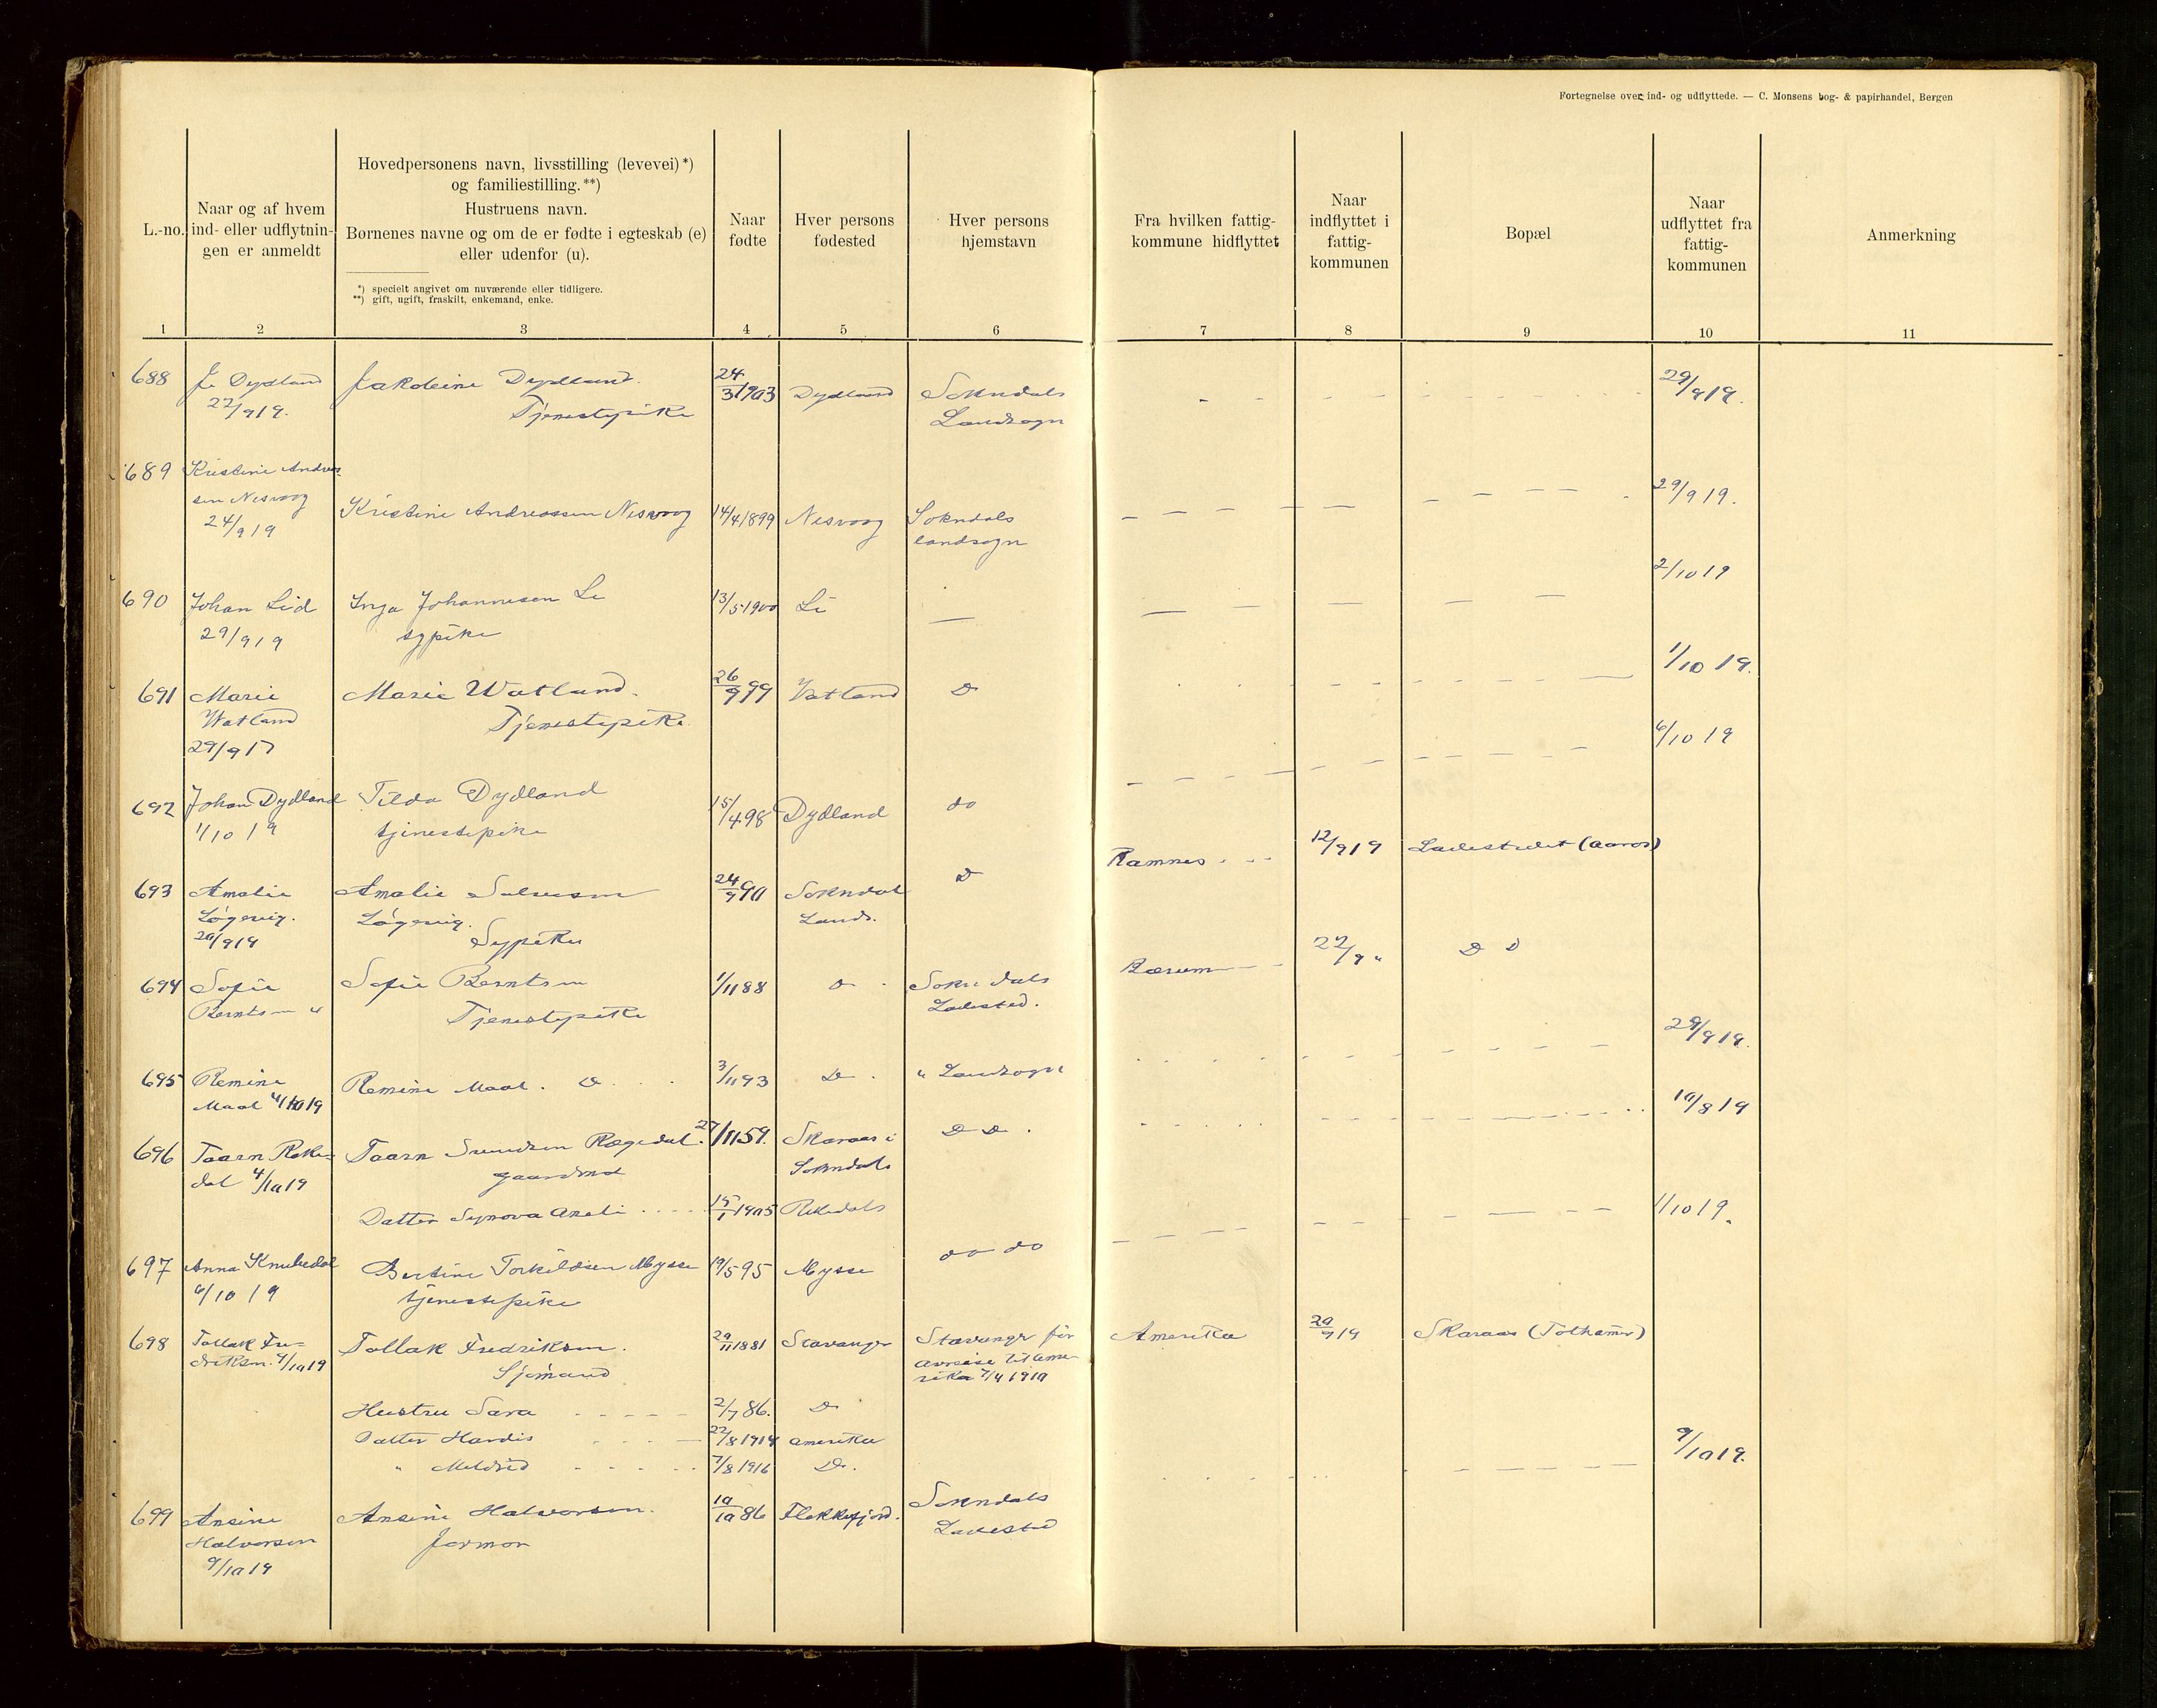 Fortegnelse over ind- og udflyttede. — C. Monsens bog- & papirhandel, Bergen
L.-no.
Naar og af hvem
ind- eller udflytnin-
gen er anmeldt
Hovedpersonens navn, livsstilling (levevei)*)
og familiestilling.**)
Hustruens navn.
Børnenes navne og om de er fødte i egteskab (e)
eller udenfor (u).
*) specielt angivet om nuværende eller tidligere.
**) gift, ugift, fraskilt, enkemand, enke.
Naar
fødte
Hver persons
fødested
Hver persons
hjemstavn
Fra hvilken fattig-
kommune hidflyttet
Naar
indflyttet i
fattig-
kommunen
Bopæl
Naar
udflyttet fra
fattig-
kommunen
Anmerkning
1 2 3 4 5 6 7 8 9 10 11
688 J. Dydland Dydland 24/3 1903 Dydland Sokndals 29/9 19.
22/9 19. Tjenestepike Landsogn
689 Kristine Andreas-
sen Nesvog Kristine Andreassen Nesvog 14/4 1899 Nesvog Sokndals 29/9 19.
24/9 19 landsogn
690 Johan Lid Inga Johannesen Li 13/5 1900 Li — 2/10 19
29/9 19 sypike
691 Marie Marie Watland. 26/9 99 Vatland Do 1/10 19.
Watland Tjenestepike
29/9 17
692 Johan Dydland Tilda Dydland 15/4 98 Dydland do 6/10 19
1/10 19 tjenestepike
693 Amalie Amalie Salvesen 24/9 90 Sokndal Do Ramnes 12/9 19 Ladestedet (Aaros)
Løgevig. Løgevig. Lands.
20/9 19 Sypike
694 Sofie Sofie Berntsen 1/11 88 Do Sokndals Bærum 22/9 " Do Do
Berntsen " Tjenestepike Ladested.
695 Remine Remine Maal. Do 3/11 93 Do " Landsogn 29/9 19.
Maal 4/10 19
696 Taarn Reke- Taarn Svendsen Regedal. 27/11 59. Skaraas i Do Do. 10/8 19
dal 4/10 19 gaardmd Sokndals
Datter Synova 15/1 1905 Rekedals
697 Anna Knubedal Bertine Torkildsen Mysse 19/5 95 Mysse do do 1/10 19.
6/10 19 tjenestepike
698 Tollak Fre- Tollak Fredriksen. 29/11 1881 Stavanger Stavanger før Amerika 20/9 19 Skaraas (Tolhamer)
driksen. 9/10 19 Sjømand avreise til Ame-
rika 7/4 1910
Hustru Sara 2/7 86. Do
Datter Hardis 22/8 1914 Amerika
" Meldrid 7/8 1916 Do.
699 Ansine Ansine Halvorsen. 10/10 86 Flekkefjord. Sokndals 9/10 19.
Halvorsen Jormor Ladested
9/10 19